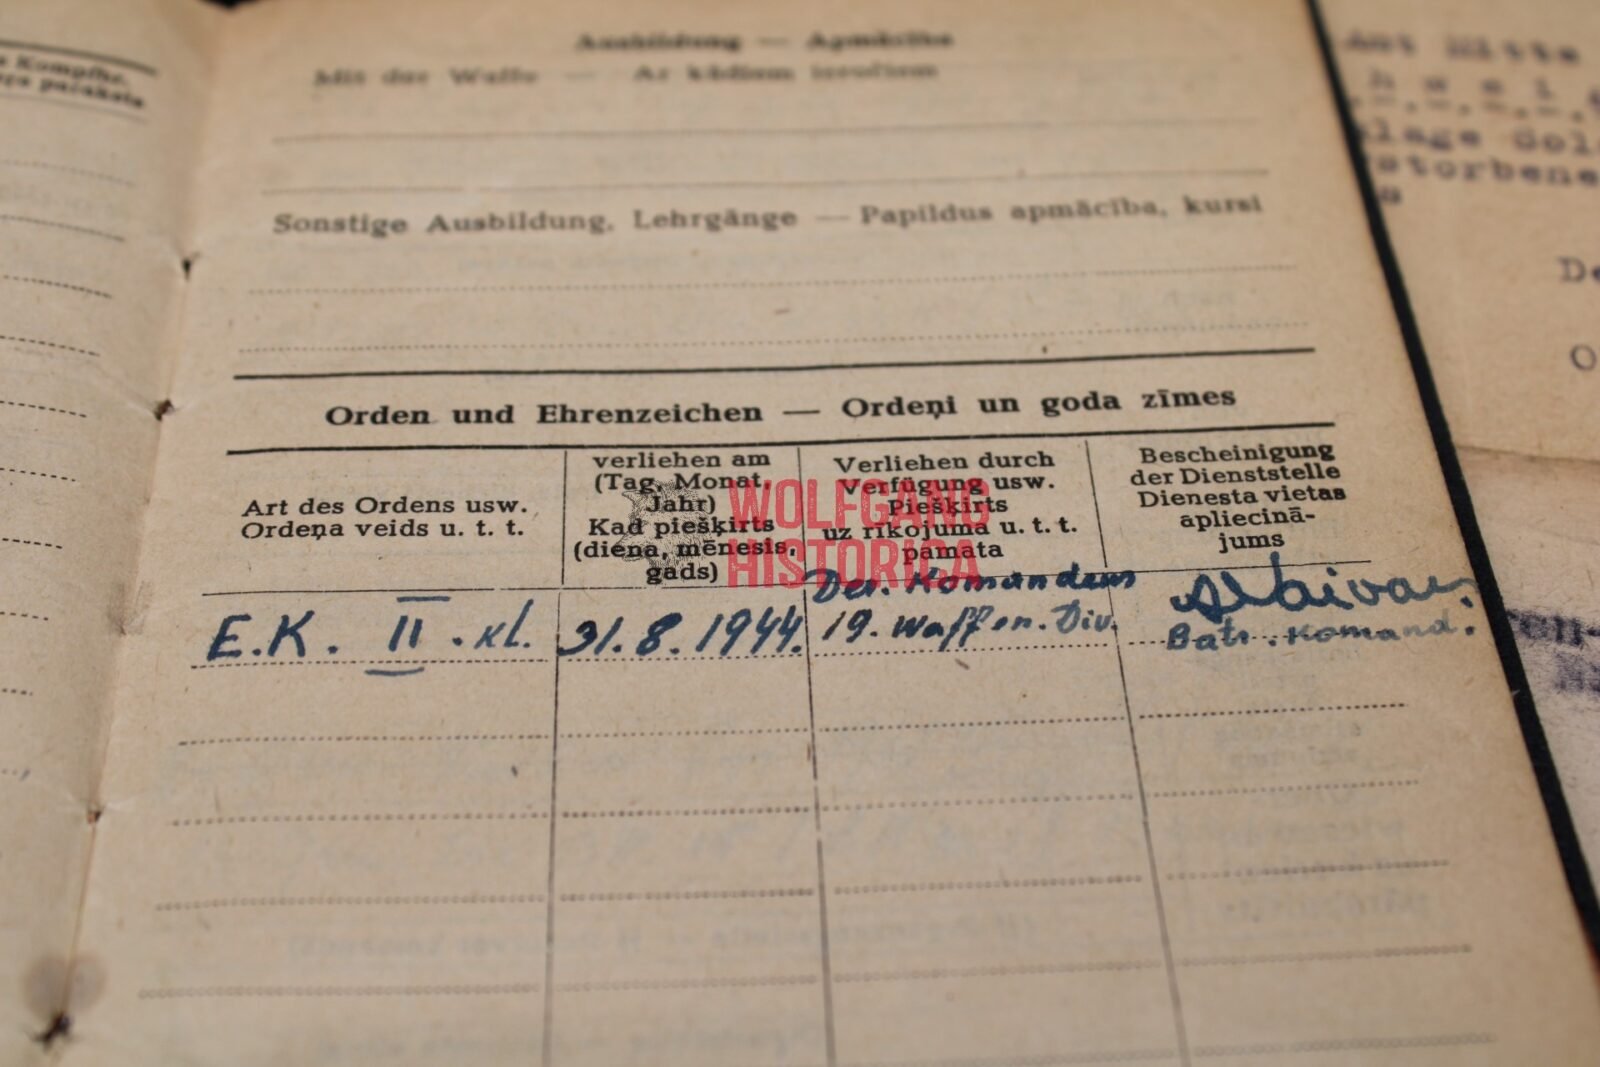 s Kompfhr.
pça paraksts
Ausbildung — Apmācība
Mit der Waffe — Ar kādiem ieročiem
Sonstige Ausbildung, Lehrgänge — Papildus apmācība, kursi
Orden und Ehrenzeichen — Ordeņi un goda zīmes
Art des Ordens usw.
Ordeņa veids u. t. t.
verliehen am
(Tag, Monat,
Jahr)
Kad piešķirts
(diena, mēnesis,
gads)
Verliehen durch
Verfügung usw.
Piešķirts
uz rīkojuma u. t. t.
pamata
Bescheinigung
der Dienststelle
Dienesta vietas
apliecinā-
jums
E.K. II. kl.
31.8.1944.
Der. Komandeus
19. Waffen. Div.
Batr. Komand.
WOLFGANG
HISTORICA
Amt Mitte
h w e i
lage Gol
storbene
De
O